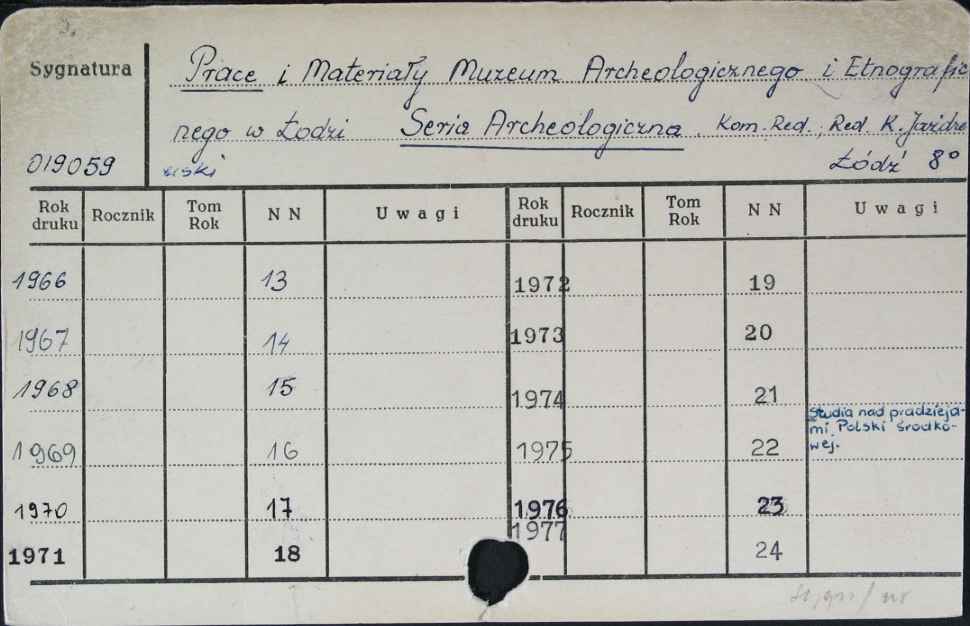 Sygnatura
Prace i Materiały Muzeum Archeologicznego i Etnografic
nego w Łodzi Seria Archeologiczna. Kom. Red.; Red K. Jażdże
019059 wski Łódź 8°
Rok druku Rocznik Tom Rok NN Uwagi Rok druku Rocznik Tom Rok NN Uwagi
1966 13 1972 19
1967 14 1973 20
1968 15 1974 21
Studia nad pradzieja-
mi Polski środko-
wej.
1969 16 1975 22
1970 17 1976 23
1977
1971 18 24